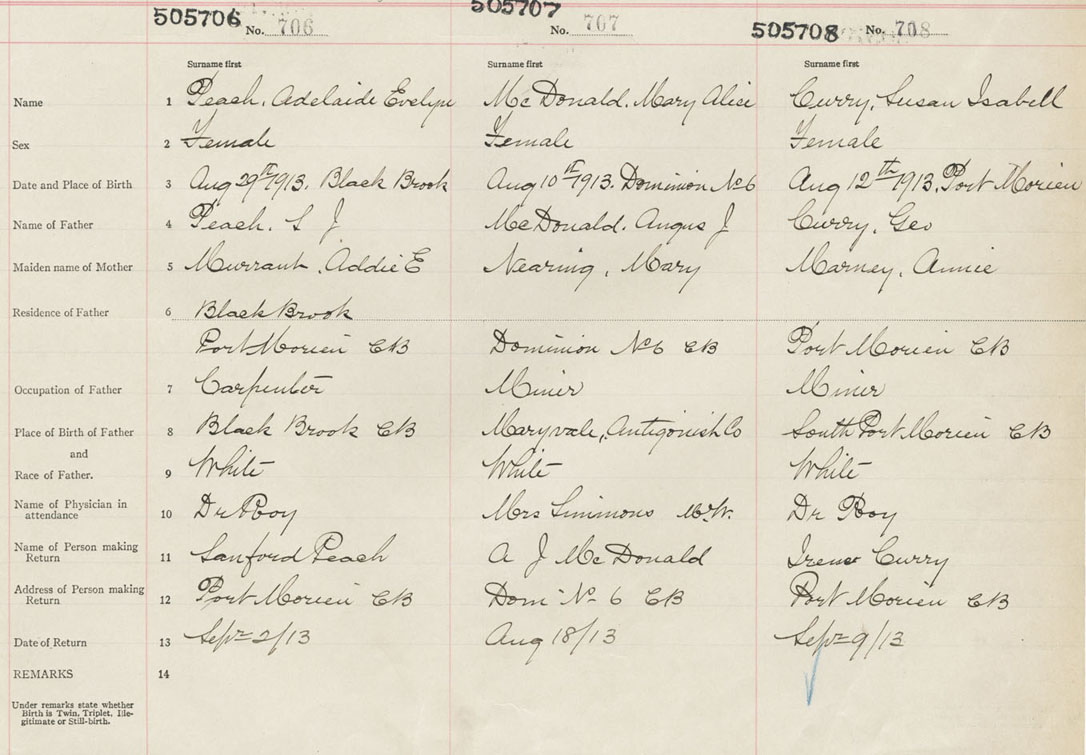 505706 No. 706 505707 No. 707 505708 No. 708
Surname first Surname first Surname first
Name 1 Peach, Adelaide Evelyn McDonald, Mary Alice Curry, Susan Isabell
Sex 2 Female Female Female
Date and Place of Birth 3 Aug 29th 1913. Black Brook Aug 10th 1913. Dominion No 6 Aug 12th 1913, Port Morien
Name of Father 4 Peach, S J McDonald, Angus J Curry, Geo
Maiden name of Mother 5 Murrant, Addie E Nearing, Mary Marney, Annie
Residence of Father 6 Black Brook
Port Morien CB Dominion No 6 CB Port Morien CB
Occupation of Father 7 Carpenter Miner Miner
Place of Birth of Father 8 Black Brook CB Maryvale, Antigonish Co South Port Morien CB
and
Race of Father. 9 White White White
Name of Physician in
attendance 10 Dr Roy Mrs Simmons Dr Roy
Name of Person making
Return 11 Sanford Peach A J McDonald Irene Curry
Address of Person making
Return 12 Port Morien CB Dom No 6 CB Port Morien CB
Date of Return 13 Sept 2/13 Aug 18/13 Sept 9/13
REMARKS 14
Under remarks state whether
Birth is Twin, Triplet, Ille-
gitimate or Still-birth.